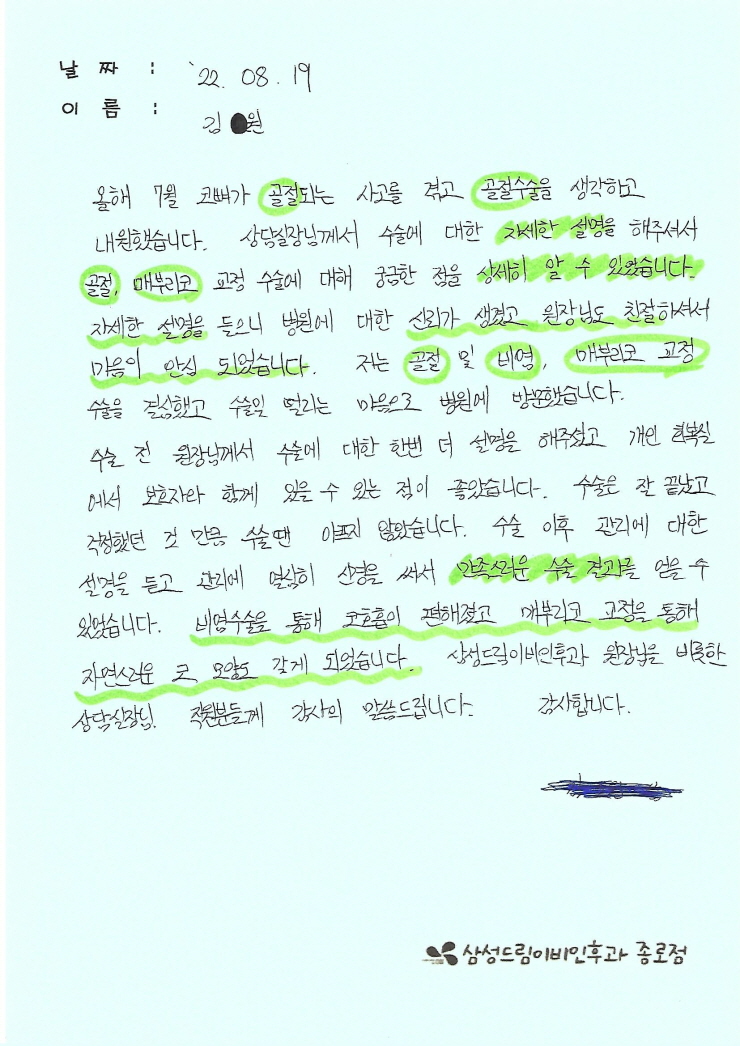 날 짜 : '22. 08. 19
이 름 : 김 원
올해 7월 코뼈가 골절되는 사고를 겪고 골절수술을 생각하고
내원했습니다. 상담실장님께서 수술에 대한 자세한 설명을 해주셔서
골절, 매부리코 교정 수술에 대해 궁금한 점을 상세히 알 수 있었습니다.
자세한 설명을 들으니 병원에 대한 신뢰가 생겼고 원장님도 친절하셔서
마음이 안심 되었습니다. 저는 골절 및 비염, 매부리코 교정
수술을 결심했고 수술일 떨리는 마음으로 병원에 방문했습니다.
수술 전 원장님께서 수술에 대한 한번 더 설명을 해주셨고 개인 회복실
에서 보호자와 함께 있을 수 있는 점이 좋았습니다. 수술은 잘 끝났고
걱정했던 것 만큼 수술땐 아프지 않았습니다. 수술 이후 관리에 대한
설명을 듣고 관리에 열심히 신경을 써서 만족스러운 수술 결과를 얻을 수
있었습니다. 비염수술을 통해 코호흡이 편해졌고 매부리코 교정을 통해
자연스러운 코 모양도 갖게 되었습니다. 삼성드림이비인후과 원장님을 비롯한
상담실장님, 직원분들께 감사의 말씀드립니다. 감사합니다.
삼성드림이비인후과 종로점